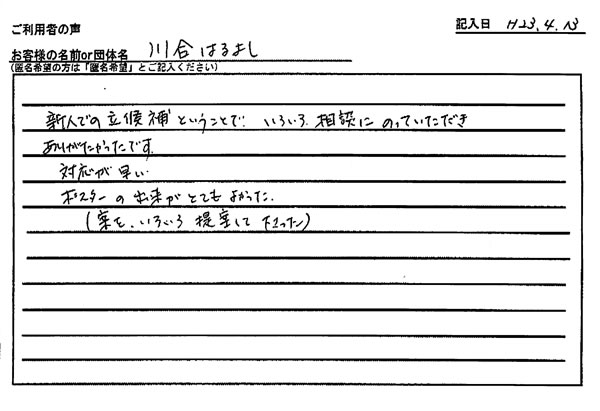 ご利用者の声
記入日 H23.4.13
お客様の名前or団体名 川合はるよし
(匿名希望の方は「匿名希望」とご記入ください)
新人での立候補ということで、いろいろ相談にのっていただき
ありがたかったです。
対応が早い
ポスターの出来がとてもよかった。
(案を、いろいろ提案して下さった)